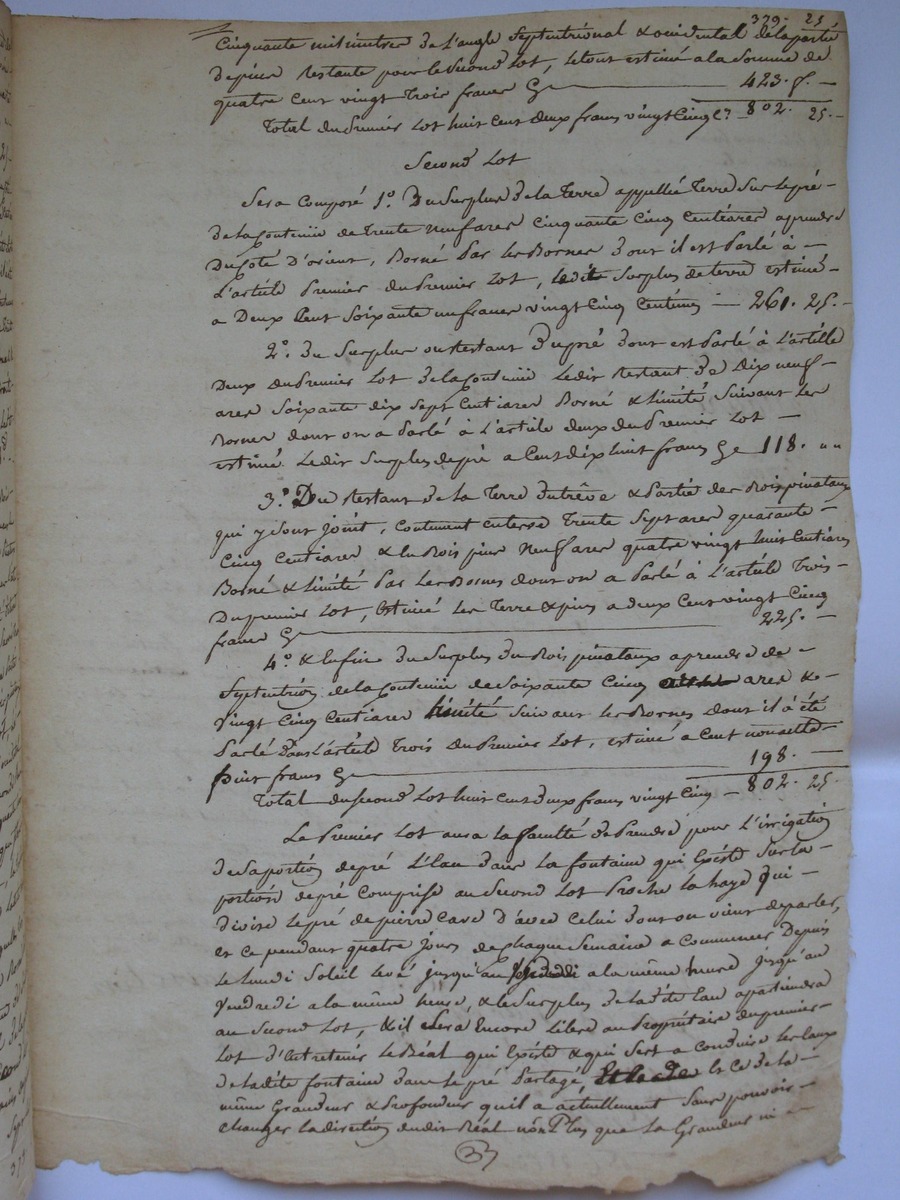 379. 25
Cinquante milimitres de L'angle Septentrional & occidental de la partie
de pieu restante pour le Second Lot, le tout estimé a la Somme de
quatre cent vingt Trois francs Cy 423. f. —
Total du Premier Lot huit Cent deux francs vingt Cinq C.s — 802. 25. —
Second Lot
Sera Composé 1.º Du Surplus de la Terre appellée Terre Sur le pré —
de la Contenüe de Trente neuf ares Cinquante Cinq Centiares aprendre
Du Coté D'orient, Borné Par les Bornes dont il est Parlé à —
L'article Premier du Premier Lot, Ledit Surplus de terre estimé —
a Deux Cent Soixante un francs vingt Cinq Centimes — 261. 25. —
2.º du Surplus ou restant du pré dont est Parlé à L'article
Deux du Premier Lot de la Contenüe Ledit Restant de Dix neuf —
ares Soixante dix Sept Centiares Borné & limité Suivant les
Bornes dont on a Parlé à L'article deux du Premier Lot —
estimé Ledit Surplus de pré a Cent dix huit francs Cy 118. " "
3.º Du Restant de la Terre & Partie des Bois pinataux
qui y Sont Joint, Contenant en terre Trente Sept ares quarante —
Cinq Centiares & en Bois pins Neuf ares quatre vingt huit Centiares
Borné & limité Par les Bornes dont on a Parlé à L'article Trois —
Du premier Lot, Estimé les Terre & pins a deux Cent vingt Cinq
francs Cy 225. —
4.º & Enfin du Surplus du Bois pinataux aprendre de —
Septentrion de la Contenüe de Soixante Cinq ares & —
vingt Cinq Centiares limité Suivant les Bornes dont il à été
Parlé Dans L'article Trois du Premier Lot, estimé a Cent nonante —
huit francs Cy 198. —
Total du Second Lot huit cent deux francs vingt Cinq — 802. 25.
Le Premier Lot aura la faculté de Prendre pour L'irrigation
de Sa portion de pré L'Eau dans la fontaine qui Existe Sur la —
portion de pré Comprise au Second Lot Proche la haye qui —
divise le pré de pierre Cave D'avec Celui dont on vient de parler,
et ce pendant quatre Jours de Chaque Semaine a Commencer Depuis
Le Lundi Soleil levé jusqu'au a la même heure jusqu'au
Vendredi a la même heure, & le Surplus de Ladite Eau apartiendra
au Second Lot, & il Sera Encore Libre au Propriétaire du premier —
Lot d'Entretenir le Béal qui Existe & qui Sert a Conduire les Eaux
de Ladite fontaine dans le pré Partagé, et Ce de la —
même Grandeur & Profondeur qu'il a actuellement Sans pouvoir —
Changer la direction dudit Béal non Plus que La Grandeur ni —